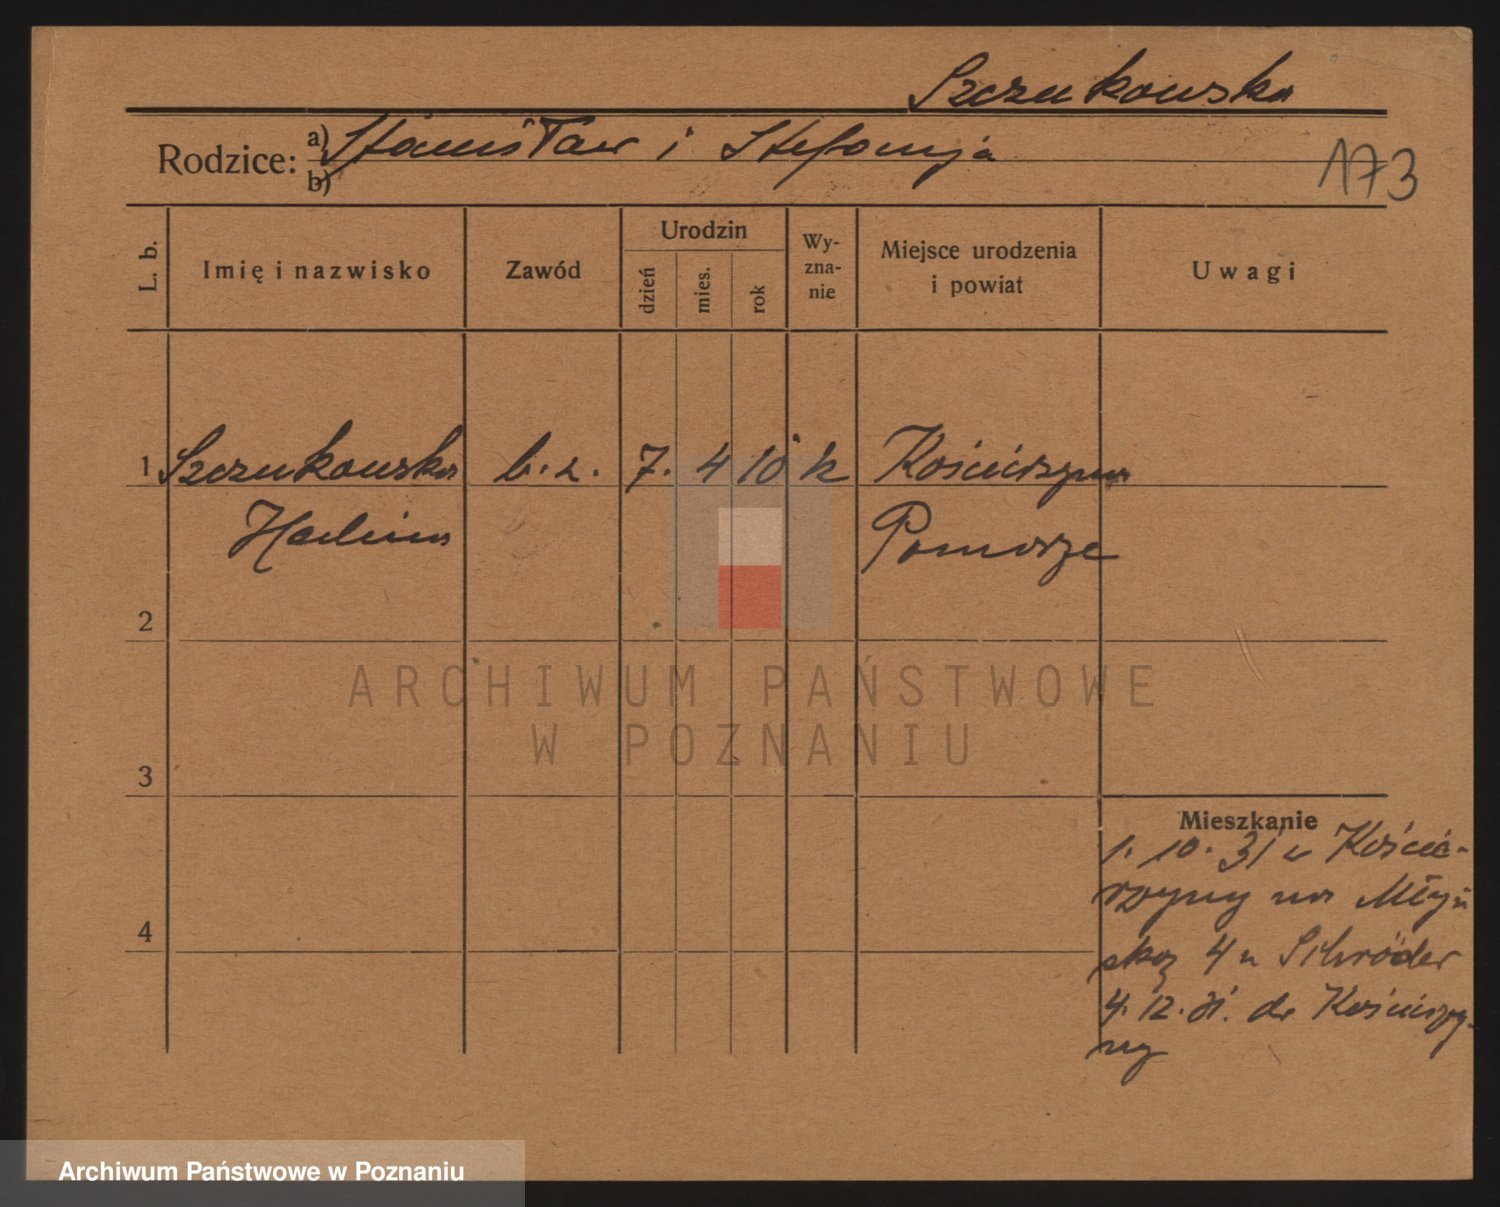 Szczukowska
Rodzice: a) Stanisław i Stefanija
b)
173
L. b.
Imię i nazwisko
Zawód
Urodzin
dzień
mies.
rok
Wy-
zna-
nie
Miejsce urodzenia
i powiat
Uwagi
1 Szczukowska b. z. 7. 4 10 k Kościerzyna
Halina Pomorze
2
3
4
Mieszkanie
1. 10. 31 z Koście-
rzyny na Młyń
ską 4 u Schröder
4. 12. 31. do Kościerzy-
ny
ARCHIWUM PAŃSTWOWE
W POZNANIU
Archiwum Państwowe w Poznaniu